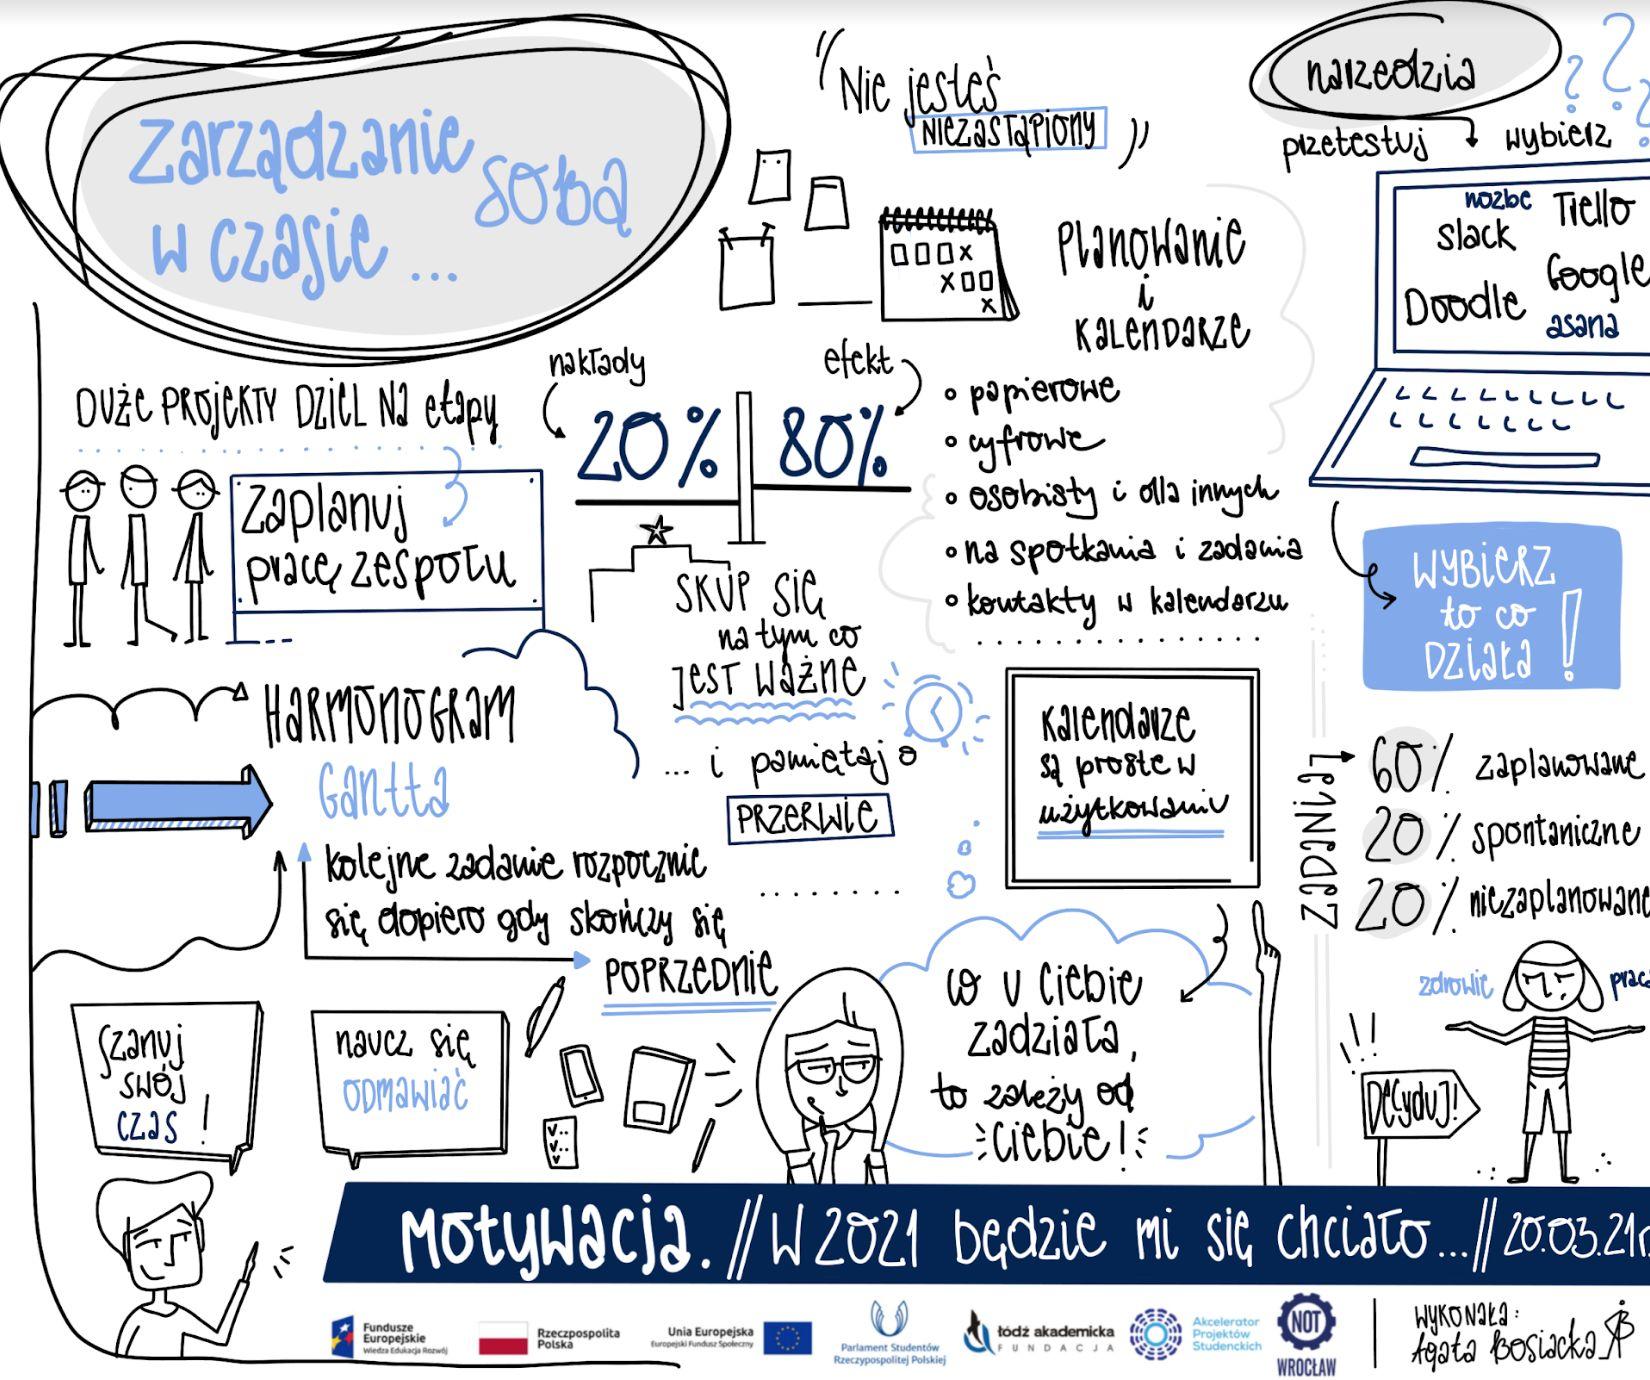 Zarządzanie
sobą
w czasie ...
"Nie jesteś
NIEZASTĄPIONY"
narzędzia
???
przetestuj
wybierz
nozbe
Trello
Slack
Google
Doodle
asana
Planowanie
i
KALENDARZE
papierowe
cyfrowe
osobisty i dla innych
na spotkania i zadania
kontakty w kalendarzu
nakłady
efekt
20%
80%
SKUP SIĘ
na tym co
JEST WAŻNE
... i pamiętaj o
PRZERWIE
DUŻE PROJEKTY DZIEL NA etapy
Zaplanuj
pracę zespołu
HARMONOGRAM
Gantta
kolejne zadanie rozpocznie
się dopiero gdy skończy się
POPRZEDNIE
Kalendarze
są proste w
użytkowaniu
WYBIERZ
to co
DZIAŁA!
ZADANIA
60% zaplanowane
20% spontaniczne
20% niezaplanowane
Szanuj
swój
czas!
naucz się
ODMAWIAĆ
co u Ciebie
zadziała,
to zależy od
Ciebie!
zdrowie
praca
Decyduj!
Motywacja. // W 2021 będzie mi się chciało... // 20.03.21r.
Fundusze
Europejskie
Wiedza Edukacja Rozwój
Rzeczpospolita
Polska
Unia Europejska
Europejski Fundusz Społeczny
Parlament Studentów
Rzeczypospolitej Polskiej
łódź akademicka
FUNDACJA
Akcelerator
Projektów
Studenckich
NOT
WROCŁAW
WYKONAŁA:
Agata Bosiacka